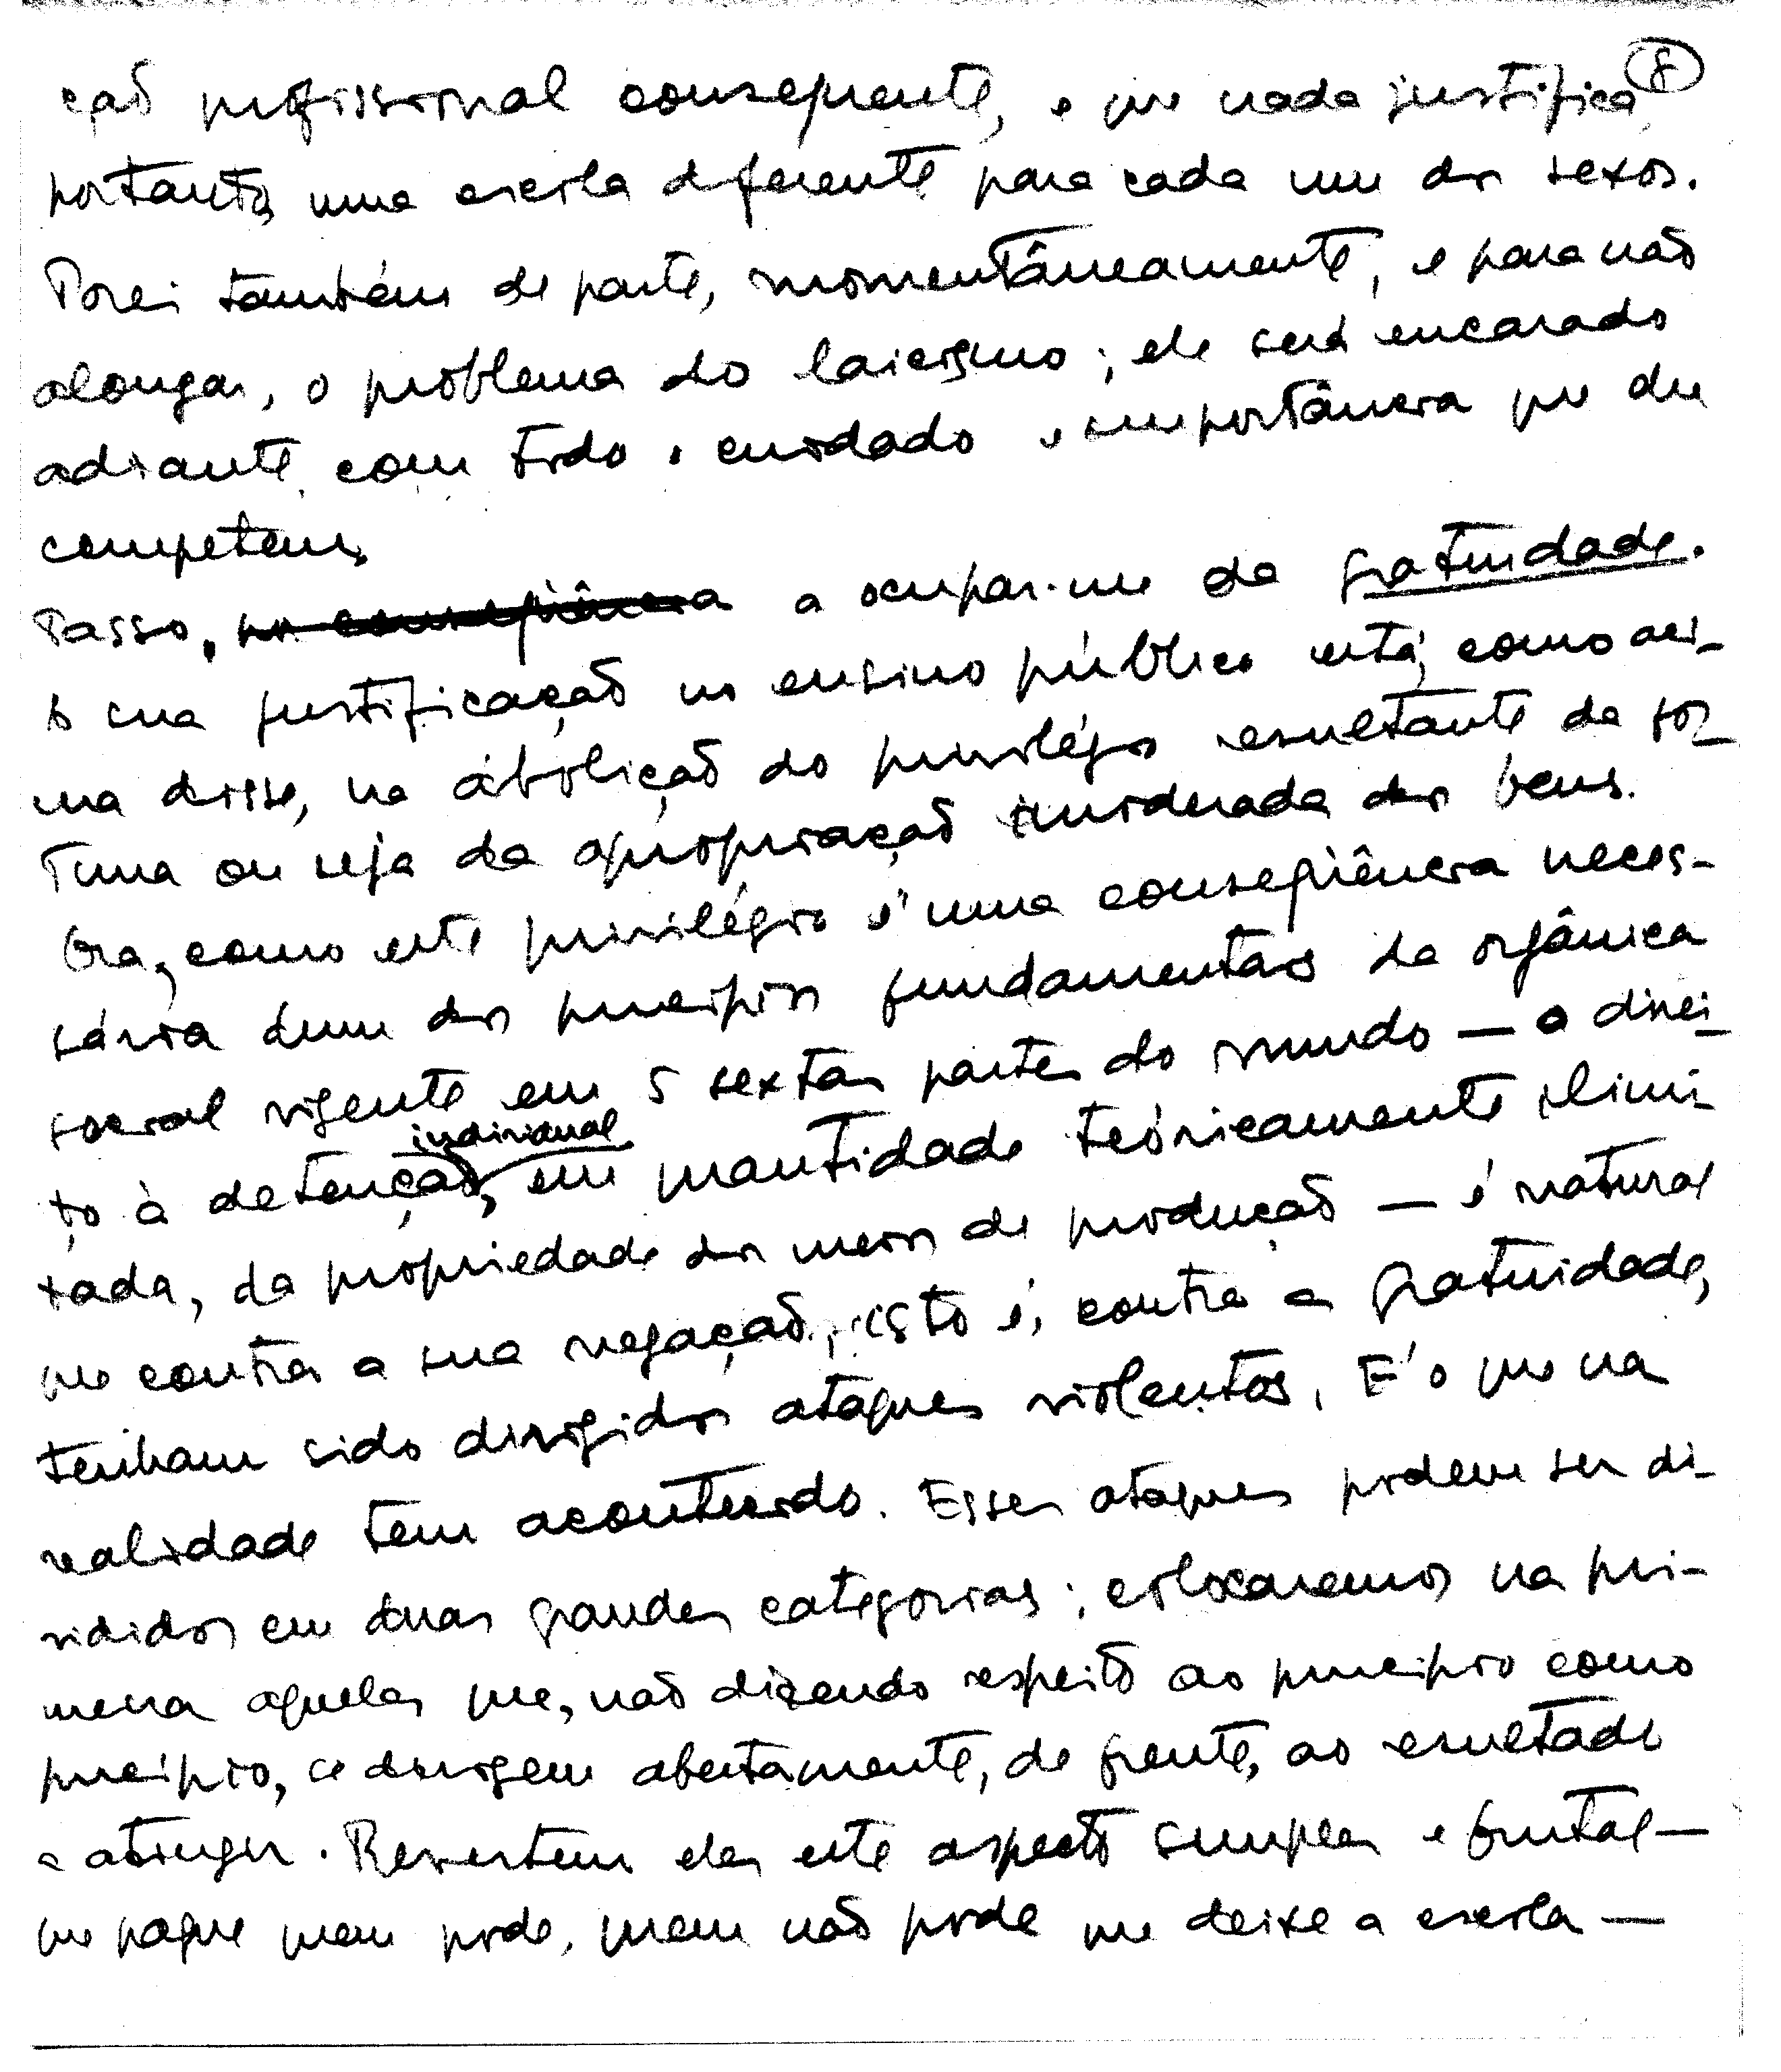 8
ção profissional conseqüente, e que nada justifica,
portanto, uma escola diferente para cada um dos sexos.
Porei também de parte, momentâneamente, e para não
alongar, o problema do laicismo; ele será encarado
adiante, com todo o cuidado e importância que lhe
competem.
Passo, por conseqüência a ocupar-me da gratuidade.
A sua justificação no ensino público está, como aci-
ma disse, na abolição do privilégio resultante da for-
tuna ou seja da apropriação imoderada dos bens.
Ora, como este privilégio é uma conseqüência neces-
sária dum dos princípios fundamentais da orgânica
social vigente em 5 sextas partes do mundo — o direi-
to à detenção individual, em quantidade teóricamente ilimi-
tada, da propriedade dos meios de produção — é natural
que contra a sua negação, isto é, contra a gratuidade,
tenham sido dirigidos ataques violentos. É o que na
realidade tem acontecido. Esses ataques podem ser di-
vididos em duas grandes categorias; colocaremos na pri-
meira aqueles que, não dizendo respeito ao princípio como
princípio, se dirigem abertamente, de frente, ao resultado
a atingir. Revestem eles este aspecto simples e brutal —
que pague quem pode, quem não pode que deixe a escola —